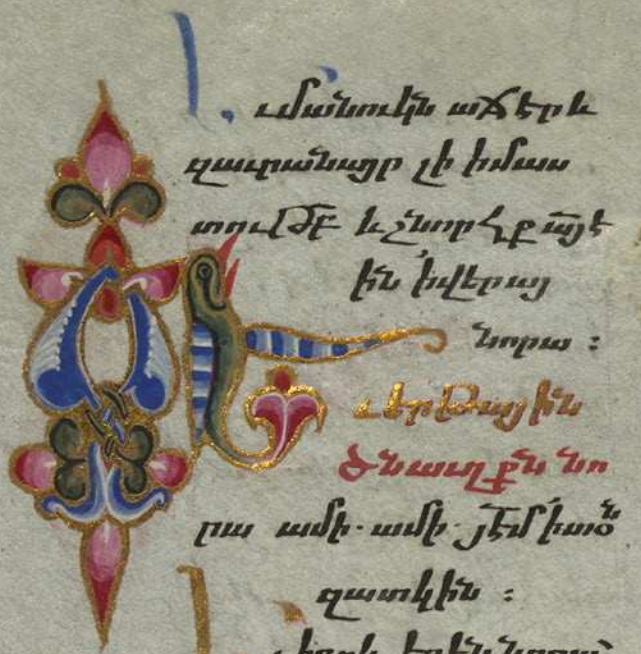 Եւ մանուկն աճէր և
զաւրանայր լի իմաս
տութբ և շնորհք այ է
ին ՛ի վերայ
նորա ։
Եւ երթային
ծնաւղքն նո
րա ամի. ամի. յէմ ի տօն
զատկին ։